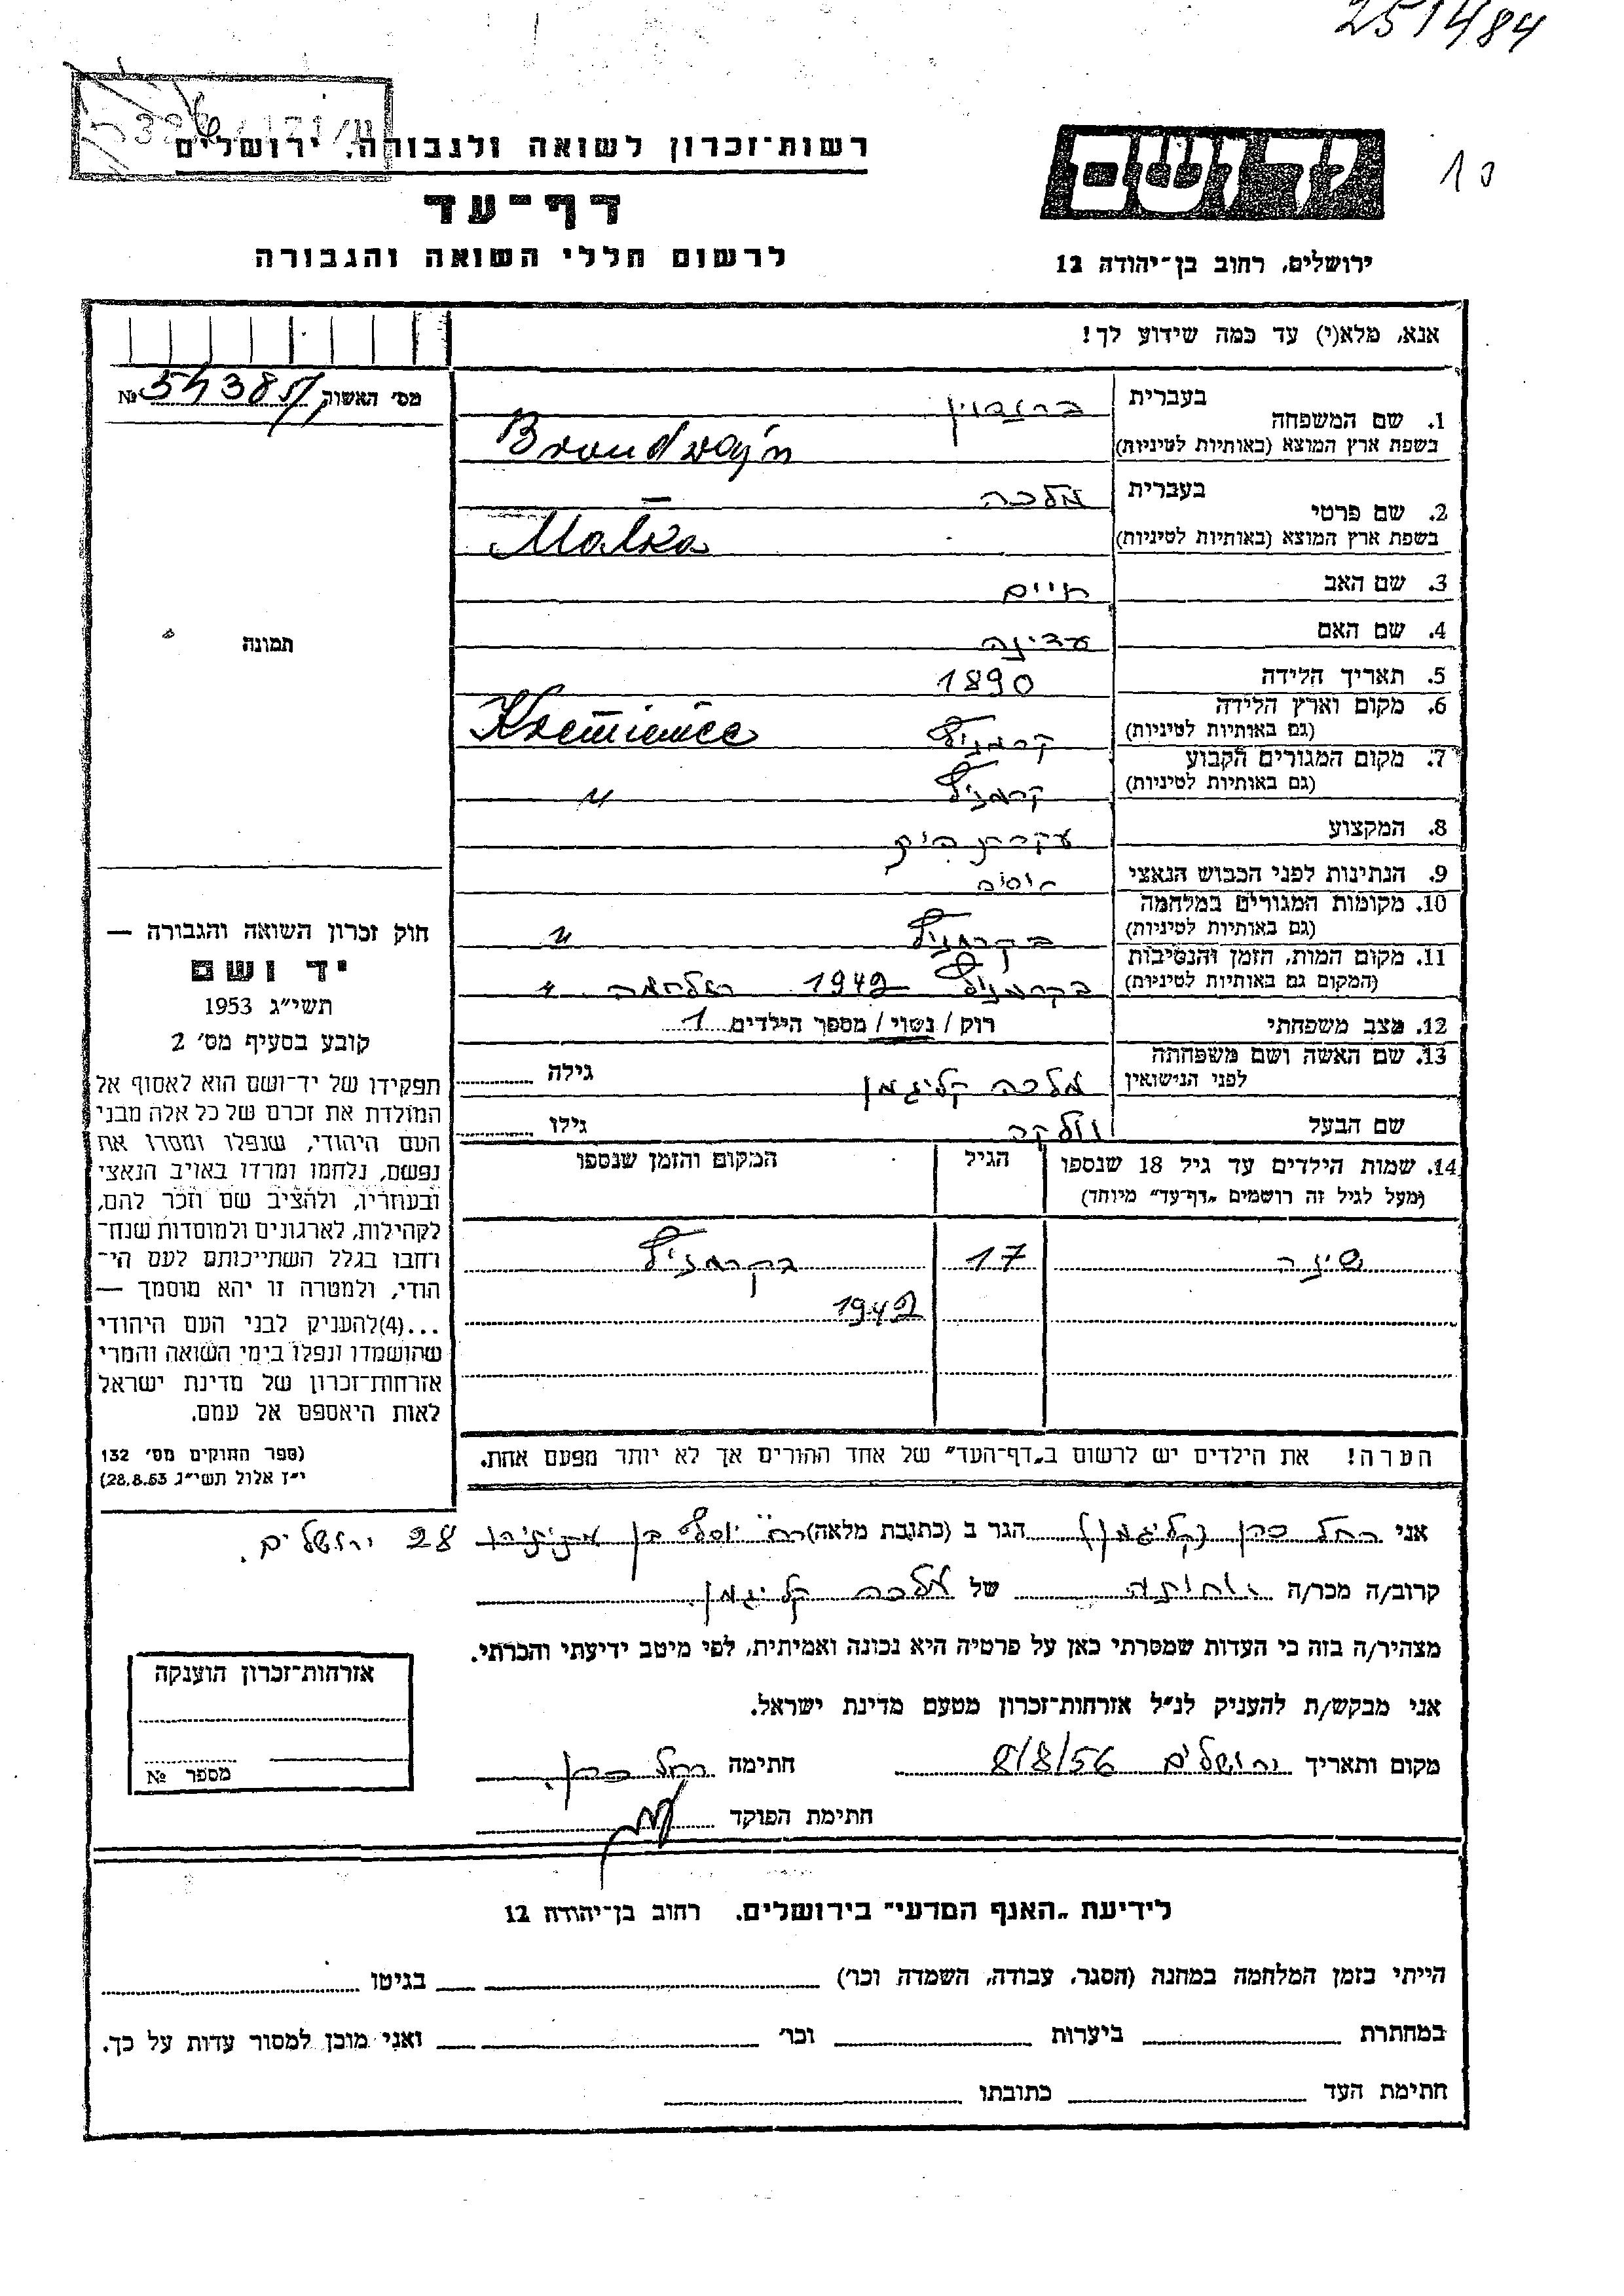 251484
רשות־זכרון לשואה ולגבורה, ירושלים
דף־עד
לרשום חללי השואה והגבורה
ידושם
ירושלים, רחוב בן־יהודה 12
אנא, מלא(י) עד כמה שידוע לך!
מס' האשור 54385 №
1. שם המשפחה
בעברית ברנדוין
בשפת ארץ המוצא (באותיות לטיניות) Brandwajn
2. שם פרטי
בעברית מלכה
בשפת ארץ המוצא (באותיות לטיניות) Malka
3. שם האב חיים
4. שם האם עדינה
5. תאריך הלידה 1890
6. מקום וארץ הלידה קרמניץ Kzemieniec
(גם באותיות לטיניות)
7. מקום המגורים הקבוע קרמניץ "
(גם באותיות לטיניות)
8. המקצוע עקרת בית
9. הנתינות לפני הכבוש הנאצי
10. מקומות המגורים במלחמה בקרמניץ "
(גם באותיות לטיניות)
11. מקום המות, הזמן והנסיבות בקרמניץ 1942 "
(המקום גם באותיות לטיניות)
12. מצב משפחתי רוק / נשוי / מספר הילדים 1
13. שם האשה ושם משפחתה מלכה קליגמן גילה
לפני הנישואין
שם הבעל וולקה גילו
14. שמות הילדים עד גיל 18 שנספו הגיל המקום והזמן שנספו
(מעל לגיל זה רושמים „דף־עד" מיוחד)
שינה 17 בקרמניץ
1942
הערה! את הילדים יש לרשום ב„דף־העד" של אחד ההורים אך לא יותר מפעם אחת.
תמונה
חוק זכרון השואה והגבורה —
יד ושם
תשי"ג 1953
קובע בסעיף מס' 2
תפקידו של יד־ושם הוא לאסוף אל
המולדת את זכרם של כל אלה מבני
העם היהודי, שנפלו ומסרו את
נפשם, נלחמו ומרדו באויב הנאצי
ובעוזריו, ולהציב שם וזכר להם,
לקהילות, לארגונים ולמוסדות שנח־
רבו בגלל השתייכותם לעם הי־
הודי, ולמטרה זו יהא מוסמך —
...(4)להעניק לבני העם היהודי
שהושמדו ונפלו בימי השואה והמרי
אזרחות־זכרון של מדינת ישראל
לאות היאספם אל עמם.
(ספר החוקים מס' 132
י"ז אלול תשי"ג 28.8.53)
אני רחל כהן (קליגמן) הגר ב (כתובת מלאה) רח' יוסף בן מתיתיהו 28 ירושלים.
קרוב/ה מכר/ה של מלכה קליגמן
מצהיר/ה בזה כי העדות שמסרתי כאן על פרטיה היא נכונה ואמיתית, לפי מיטב ידיעתי והכרתי.
אני מבקש/ת להעניק לנ"ל אזרחות־זכרון מטעם מדינת ישראל.
מקום ותאריך ירושלים 8/8/56 חתימה רחל כהן.
חתימת הפוקד
אזרחות־זכרון הוענקה
מספר №
לידיעת „האגף המדעי" בירושלים. רחוב בן־יהודה 12
הייתי בזמן המלחמה במחנה (הסגר, עבודה, השמדה וכו') בגיטו
במחתרת ביערות וכו' ואני מוכן למסור עדות על כך.
חתימת העד כתובתו